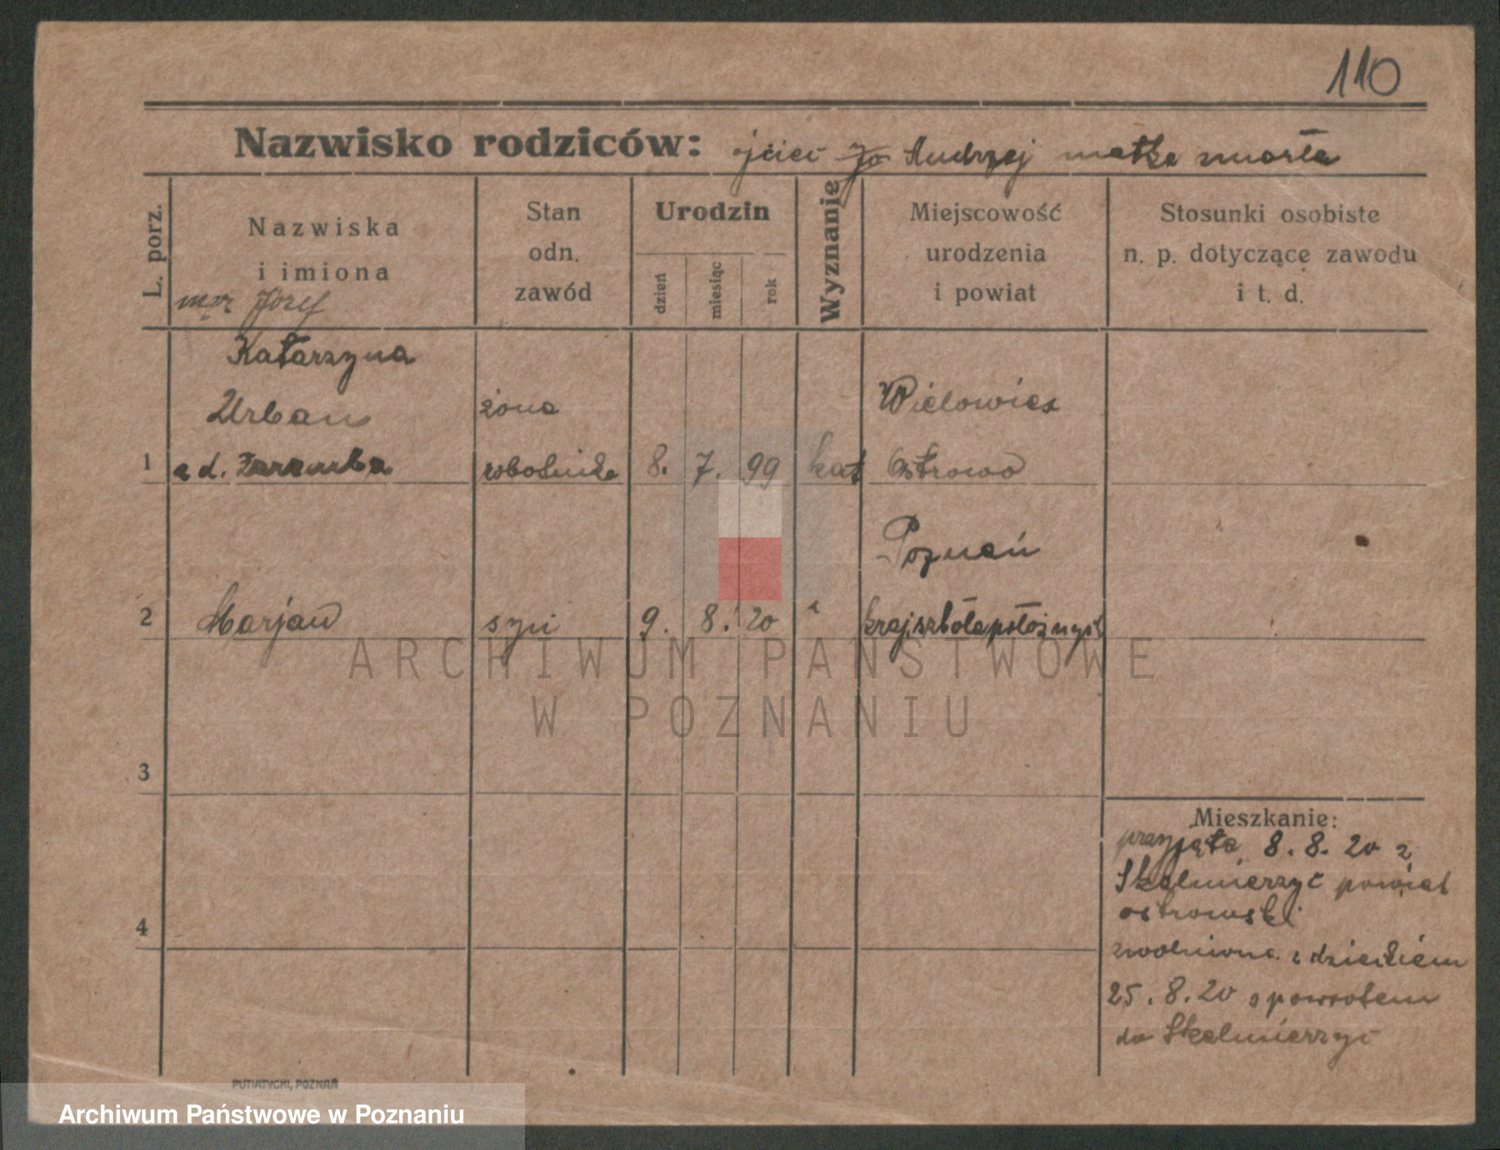 110
Nazwisko rodziców: ojciec Jo Andrzej matka zmarła
L. porz.
Nazwiska
i imiona
mąż Józef
Stan
odn.
zawód
Urodzin
dzień
miesiąc
rok
Wyznanie
Miejscowość
urodzenia
i powiat
Stosunki osobiste
n. p. dotyczące zawodu
i t. d.
Katarzyna
Urban
żona
Wielowieś
1
robotnika
8. 7. 99
kat
Ostrowo
Poznań
2
Marjan
syn
9. 8. 20
"
kraj. szkoła położnych
ARCHIWUM PAŃSTWOWE
W POZNANIU
3
4
Mieszkanie:
przyjęta 8. 8. 20 z
Skalmierzyc powiat
ostrowski
zwolniona z dzieckiem
25. 8. 20 z powrotem
do Skalmierzyc
PUTIATYCKI, POZNAŃ
Archiwum Państwowe w Poznaniu